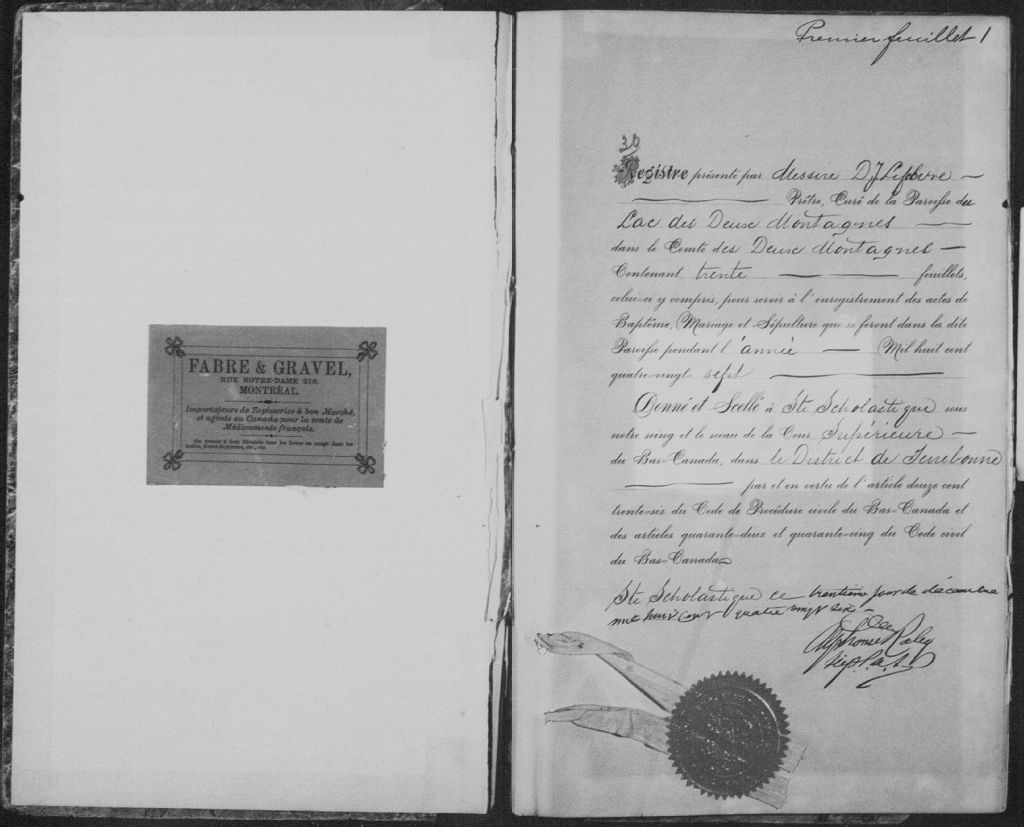 FABRE & GRAVEL,
RUE NOTRE-DAME 219,
MONTRÉAL.
Importateurs de Tapisseries à bon Marché,
et agents au Canada pour la vente de
Médicaments français.
On trouve à leur librairie tous les livres en usage dans les
Premier feuillet 1
30
Registre présenté par Messire D J Lefebvre —
— Prêtre, Curé de la Paroisse du
Lac des Deux Montagnes —
dans le Comté des Deux Montagnes —
Contenant trente — — feuillets,
celui-ci y compris, pour servir à l'enregistrement des actes de
Baptême, Mariage et Sépulture que se feront dans la dite
Paroisse pendant l'année — Mil huit cent
quatre-vingt- sept —
Donné et Scellé à Ste Scholastique sous
notre seing et le sceau de la Cour Supérieure —
du Bas-Canada, dans le District de Terrebonne
— par et en vertu de l'article douze cent
trente-six du Code de Procédure civile du Bas-Canada et
des articles quarante-deux et quarante-cinq du Code civil
du Bas-Canada
Ste Scholastique ce trentième jour de décembre
mil huit cent quatre vingt six —